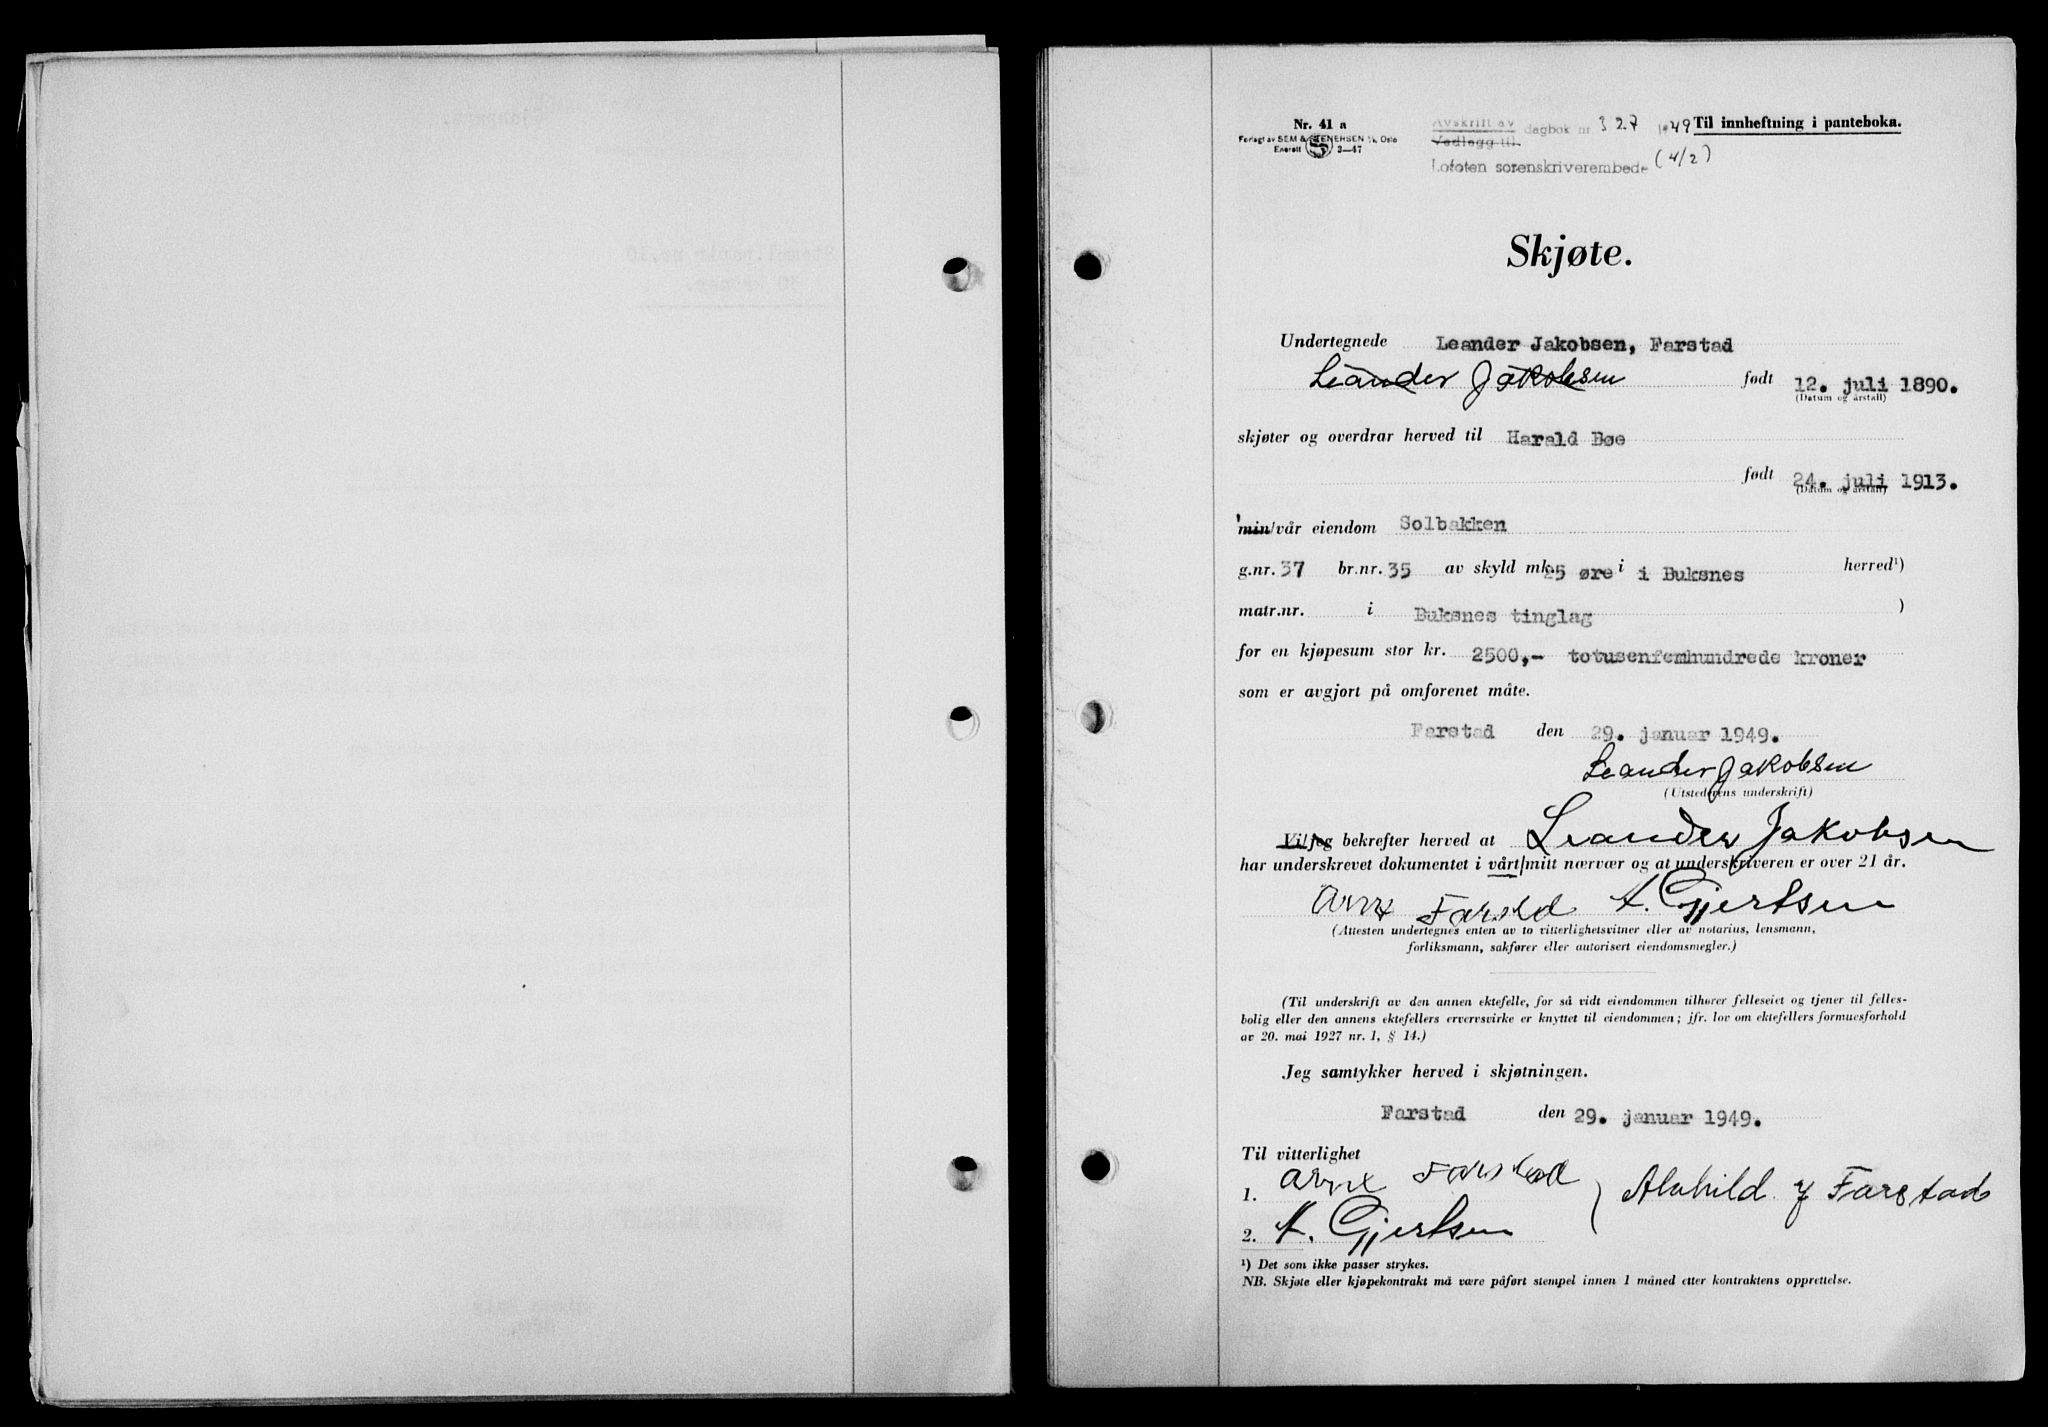 Nr. 41 a
Forlagt av SEM & STENERSEN A/S, Oslo
Enerett 3—47
Avskrift av
Vedlegg til
dagbok nr 327 1949
Til innheftning i panteboka.
Lofoten sorenskriverembede (4/2)
Skjøte.
Undertegnede Leander Jakobsen, Farstad
Leander Jakobsen født 12. juli 1890.
(Datum og årstall)
skjøter og overdrar herved til Harald Bøe
født 24. juli 1913.
(Datum og årstall)
min/vår eiendom Solbakken
g.nr. 37 br.nr. 35 av skyld mk. 25 øre i i Buksnes herred¹)
matr.nr. i Buksnes tinglag )
for en kjøpesum stor kr. 2500,- totusenfemhundrede kroner
som er avgjort på omforenet måte.
Farstad den 29. januar 1949.
Leander Jakobsen
(Utstederens underskrift)
Vi/jeg bekrefter herved at Leander Jakobsen
har underskrevet dokumentet i vårt/mitt nærvær og at underskriveren er over 21 år.
Arne Farstad A. Gjertsen
(Attesten undertegnes enten av to vitterlighetsvitner eller av notarius, lensmann,
forliksmann, sakfører eller autorisert eiendomsmegler.)
(Til underskrift av den annen ektefelle, for så vidt eiendommen tilhører felleseiet og tjener til felles-
bolig eller den annens ektefellers ervervsvirke er knyttet til eiendommen; jfr. lov om ektefellers formuesforhold
av 20. mai 1927 nr. 1, § 14.)
Jeg samtykker herved i skjøtningen.
Farstad den 29. januar 1949.
Til vitterlighet
1. Arne Farstad
Alvhild J Farstad
2. A. Gjertsen
¹) Det som ikke passer strykes.
NB. Skjøte eller kjøpekontrakt må være påført stempel innen 1 måned etter kontraktens opprettelse.